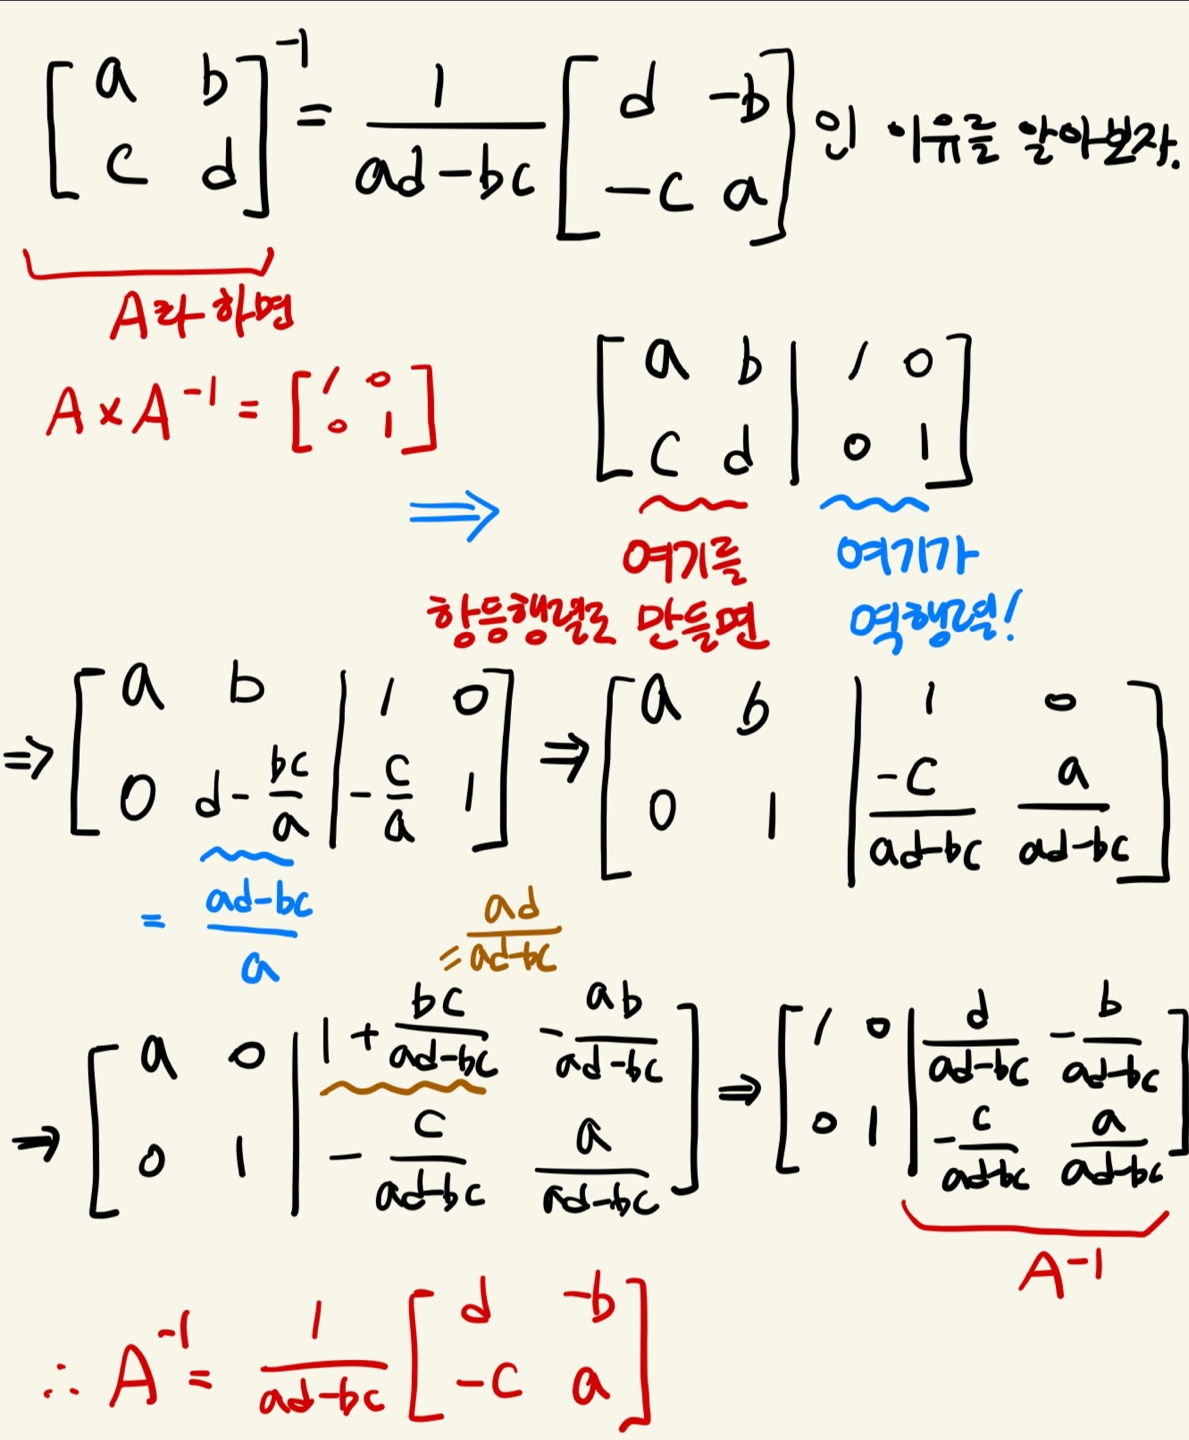 [a b; c d]⁻¹ = 1/(ad-bc) [d -b; -c a] 인 이유를 알아보자.
A라 하면
A × A⁻¹ = [1 0; 0 1]
⇒ [a b | 1 0; c d | 0 1]
여기를 여기가
항등행렬로 만들면 역행렬!
⇒ [a b | 1 0; 0 d - bc/a | -c/a 1] ⇒ [a b | 1 0; 0 1 | -c/(ad-bc) a/(ad-bc)]
= (ad-bc)/a
= ad/(ad-bc)
⇒ [a 0 | 1 + bc/(ad-bc) -ab/(ad-bc); 0 1 | -c/(ad-bc) a/(ad-bc)] ⇒ [1 0 | d/(ad-bc) -b/(ad-bc); 0 1 | -c/(ad-bc) a/(ad-bc)]
A⁻¹
∴ A⁻¹ = 1/(ad-bc) [d -b; -c a]